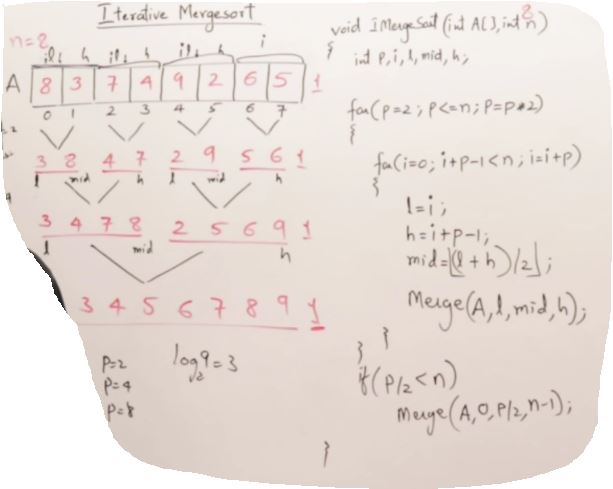 Iterative Mergesort
n=8
i l h i l h i l h i
A 8 3 7 4 9 2 6 5 1
0 1 2 3 4 5 6 7
3 8 4 7 2 9 5 6 1
l mid h l mid h
3 4 7 8 2 5 6 9 1
l mid h
3 4 5 6 7 8 9 1
P=2
P=4
P=8
log₂9=3
8
void IMergeSort (int A[], int n)
{
int P, i, l, mid, h;
for(P=2; P<=n; P=P*2)
{
for(i=0; i+P-1<n; i=i+P)
{
l=i;
h=i+P-1;
mid=⌊(l+h)/2⌋;
Merge(A, l, mid, h);
}
}
if(P/2<n)
Merge(A, 0, P/2, n-1);
}